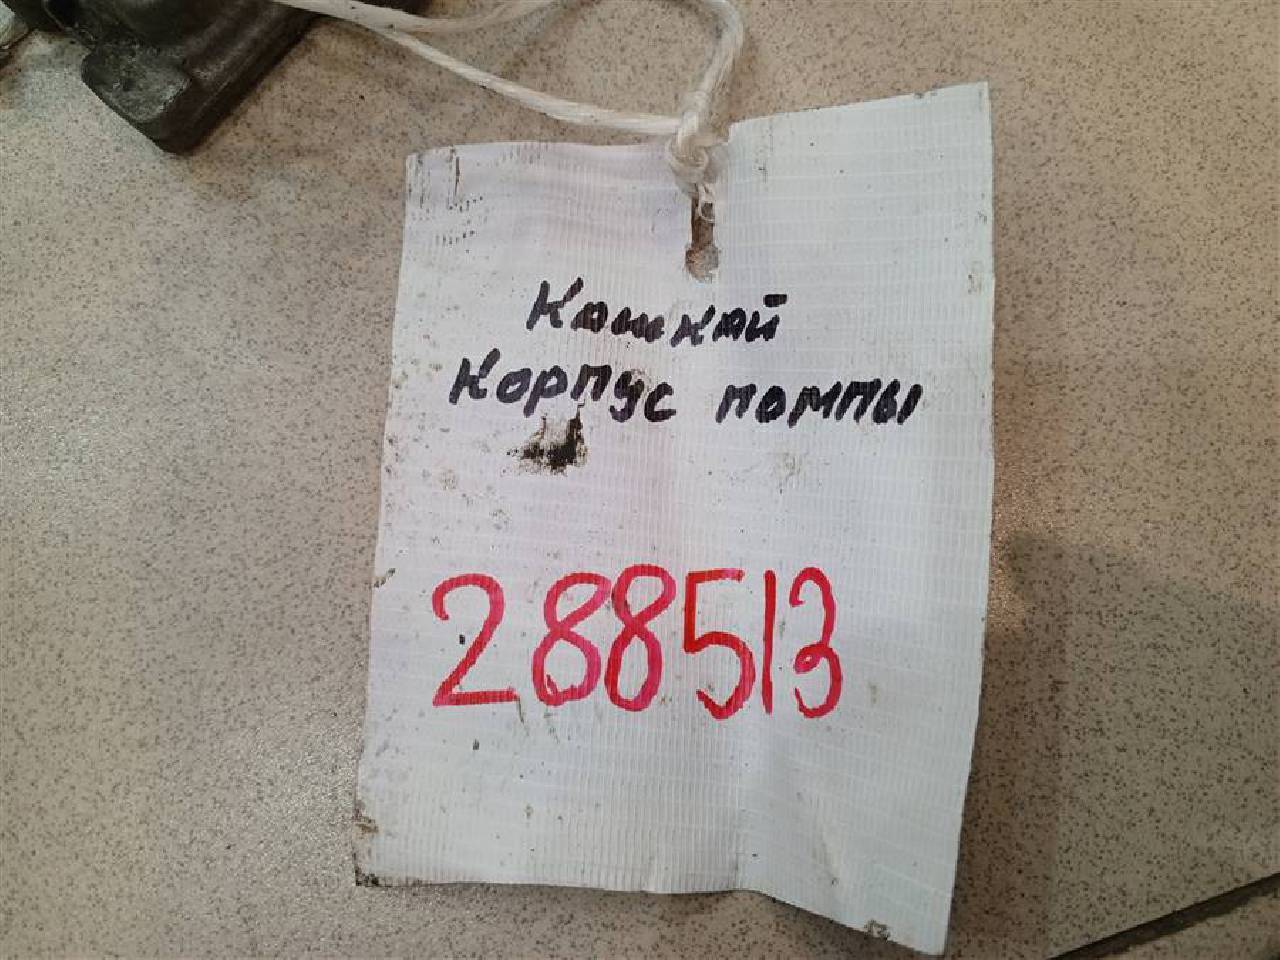 Кашкай
Корпус помпы
288513